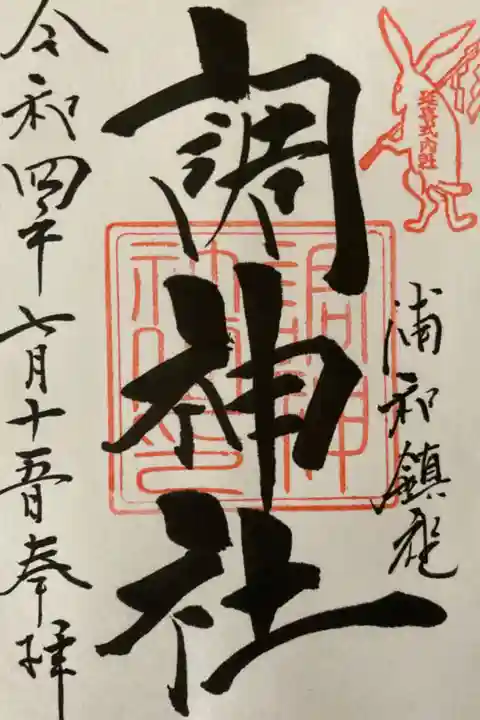 延喜式内社
浦和鎮座
調神社
調神社印
令和四年七月十五日奉拝